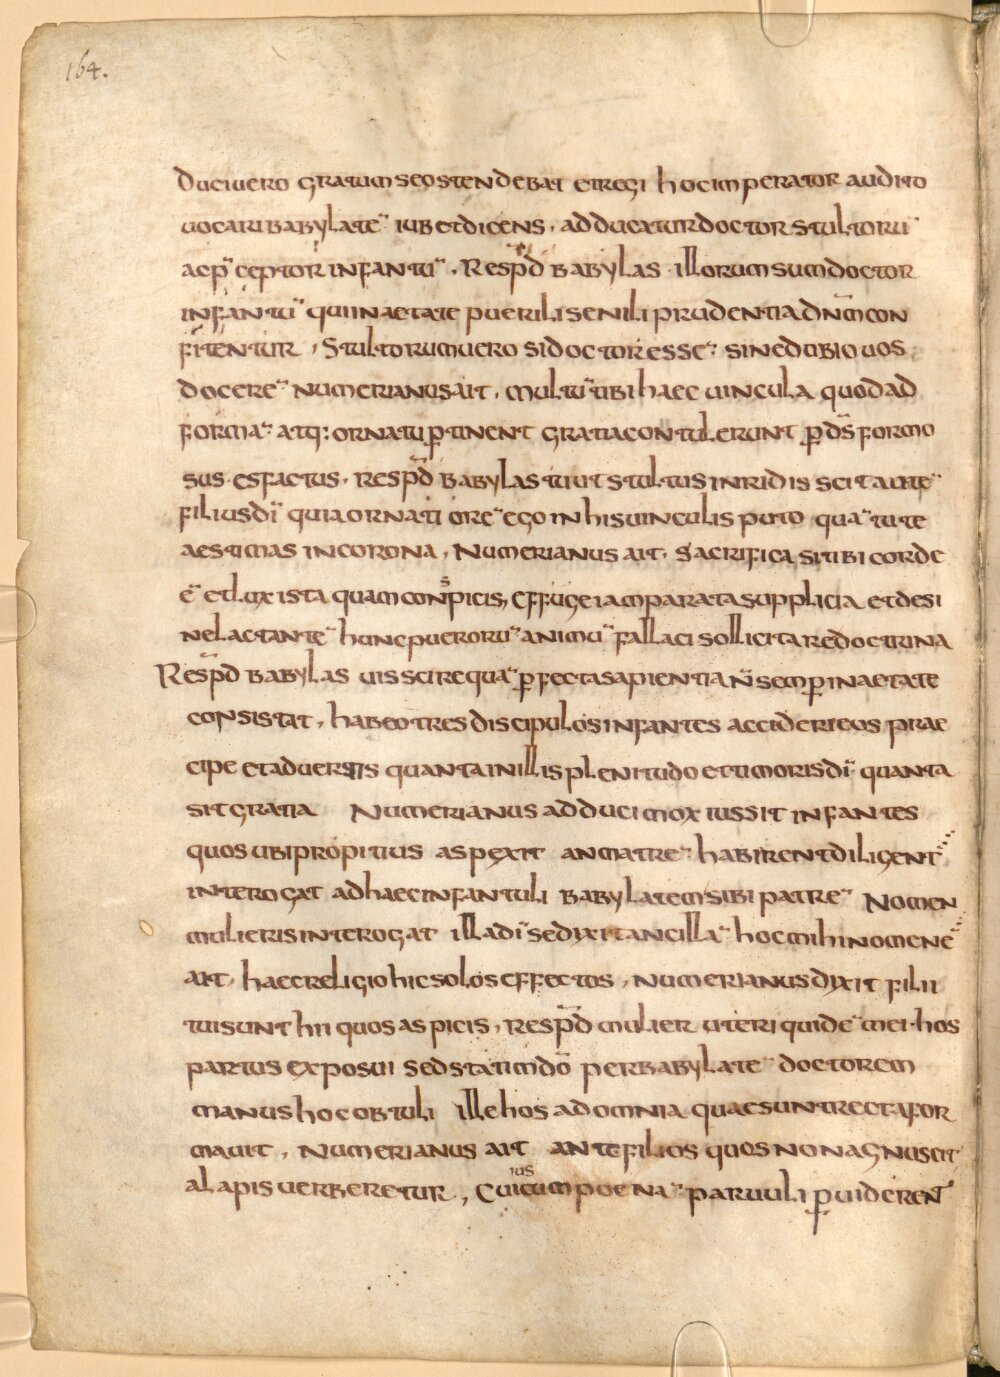 164.
Duci uero gratum se ostendebat et regi hoc imperator audito
uocari babylate̅ iubet dicens. adducatur doctor stultoru̅
ac p̅ceptor infantu̅. Resp̅d babylas illorum sum doctor
infantu̅ qui in aetate puerili senili prudentia dn̅m con
fitentur, Stultorum uero si doctor esse̅ sine dubio uos
docere̅ numerianus ait, multu̅ tibi haec uincula quod ad
forma̅ atq: ornatu ꝑtinent gratia contulerunt ꝑ ds̅ formo
sus es factus. resp̅d babylas tu ut stultus inridis sci tam̅
filius di̅ quia ornati ore̅ ego in his uinculis puto qua̅ tu te
aestimas in corona, Numerianus ait. sacrifica si tibi corde
e̅ et lux ista quam conspicis, effuge iam parata supplicia et desi
ne lactante̅ hunc pueroru̅ animu̅ fallaci sollicitare doctrina
Resp̅d babylas uis scire qua̅ ꝑfecta sapientia n̅ semꝑ in aetate
consistat, habeo tres discipulos infantes accideri eos prae
cipe et aduertis quanta in illis plenitudo et timoris di̅ quanta
sit gratia Numerianus adduci mox iussit infantes
quos ubi propitius aspexit an matre̅ habirent diligent̅
interogat ad haec infantuli babylatem sibi patre̅ Nomen
mulieris interogat illa di̅ sed dixit ancilla̅ hoc mihi nomen e̅
ait. haec religio hic solos effectos, numerianus dixit filii
tui sunt hii quos aspicis, resp̅d mulier uteri quide̅ mei. hos
partus exposui sed statim do̅ per babylate̅ doctorem
manus hoc obtuli ille hos ad omnia quae sunt recta for
mauit, numerianus ait ante filios quos non agnuscit
alapis uerberetur, Cuiuscum poena̅ paruuli ꝑuiderent̅